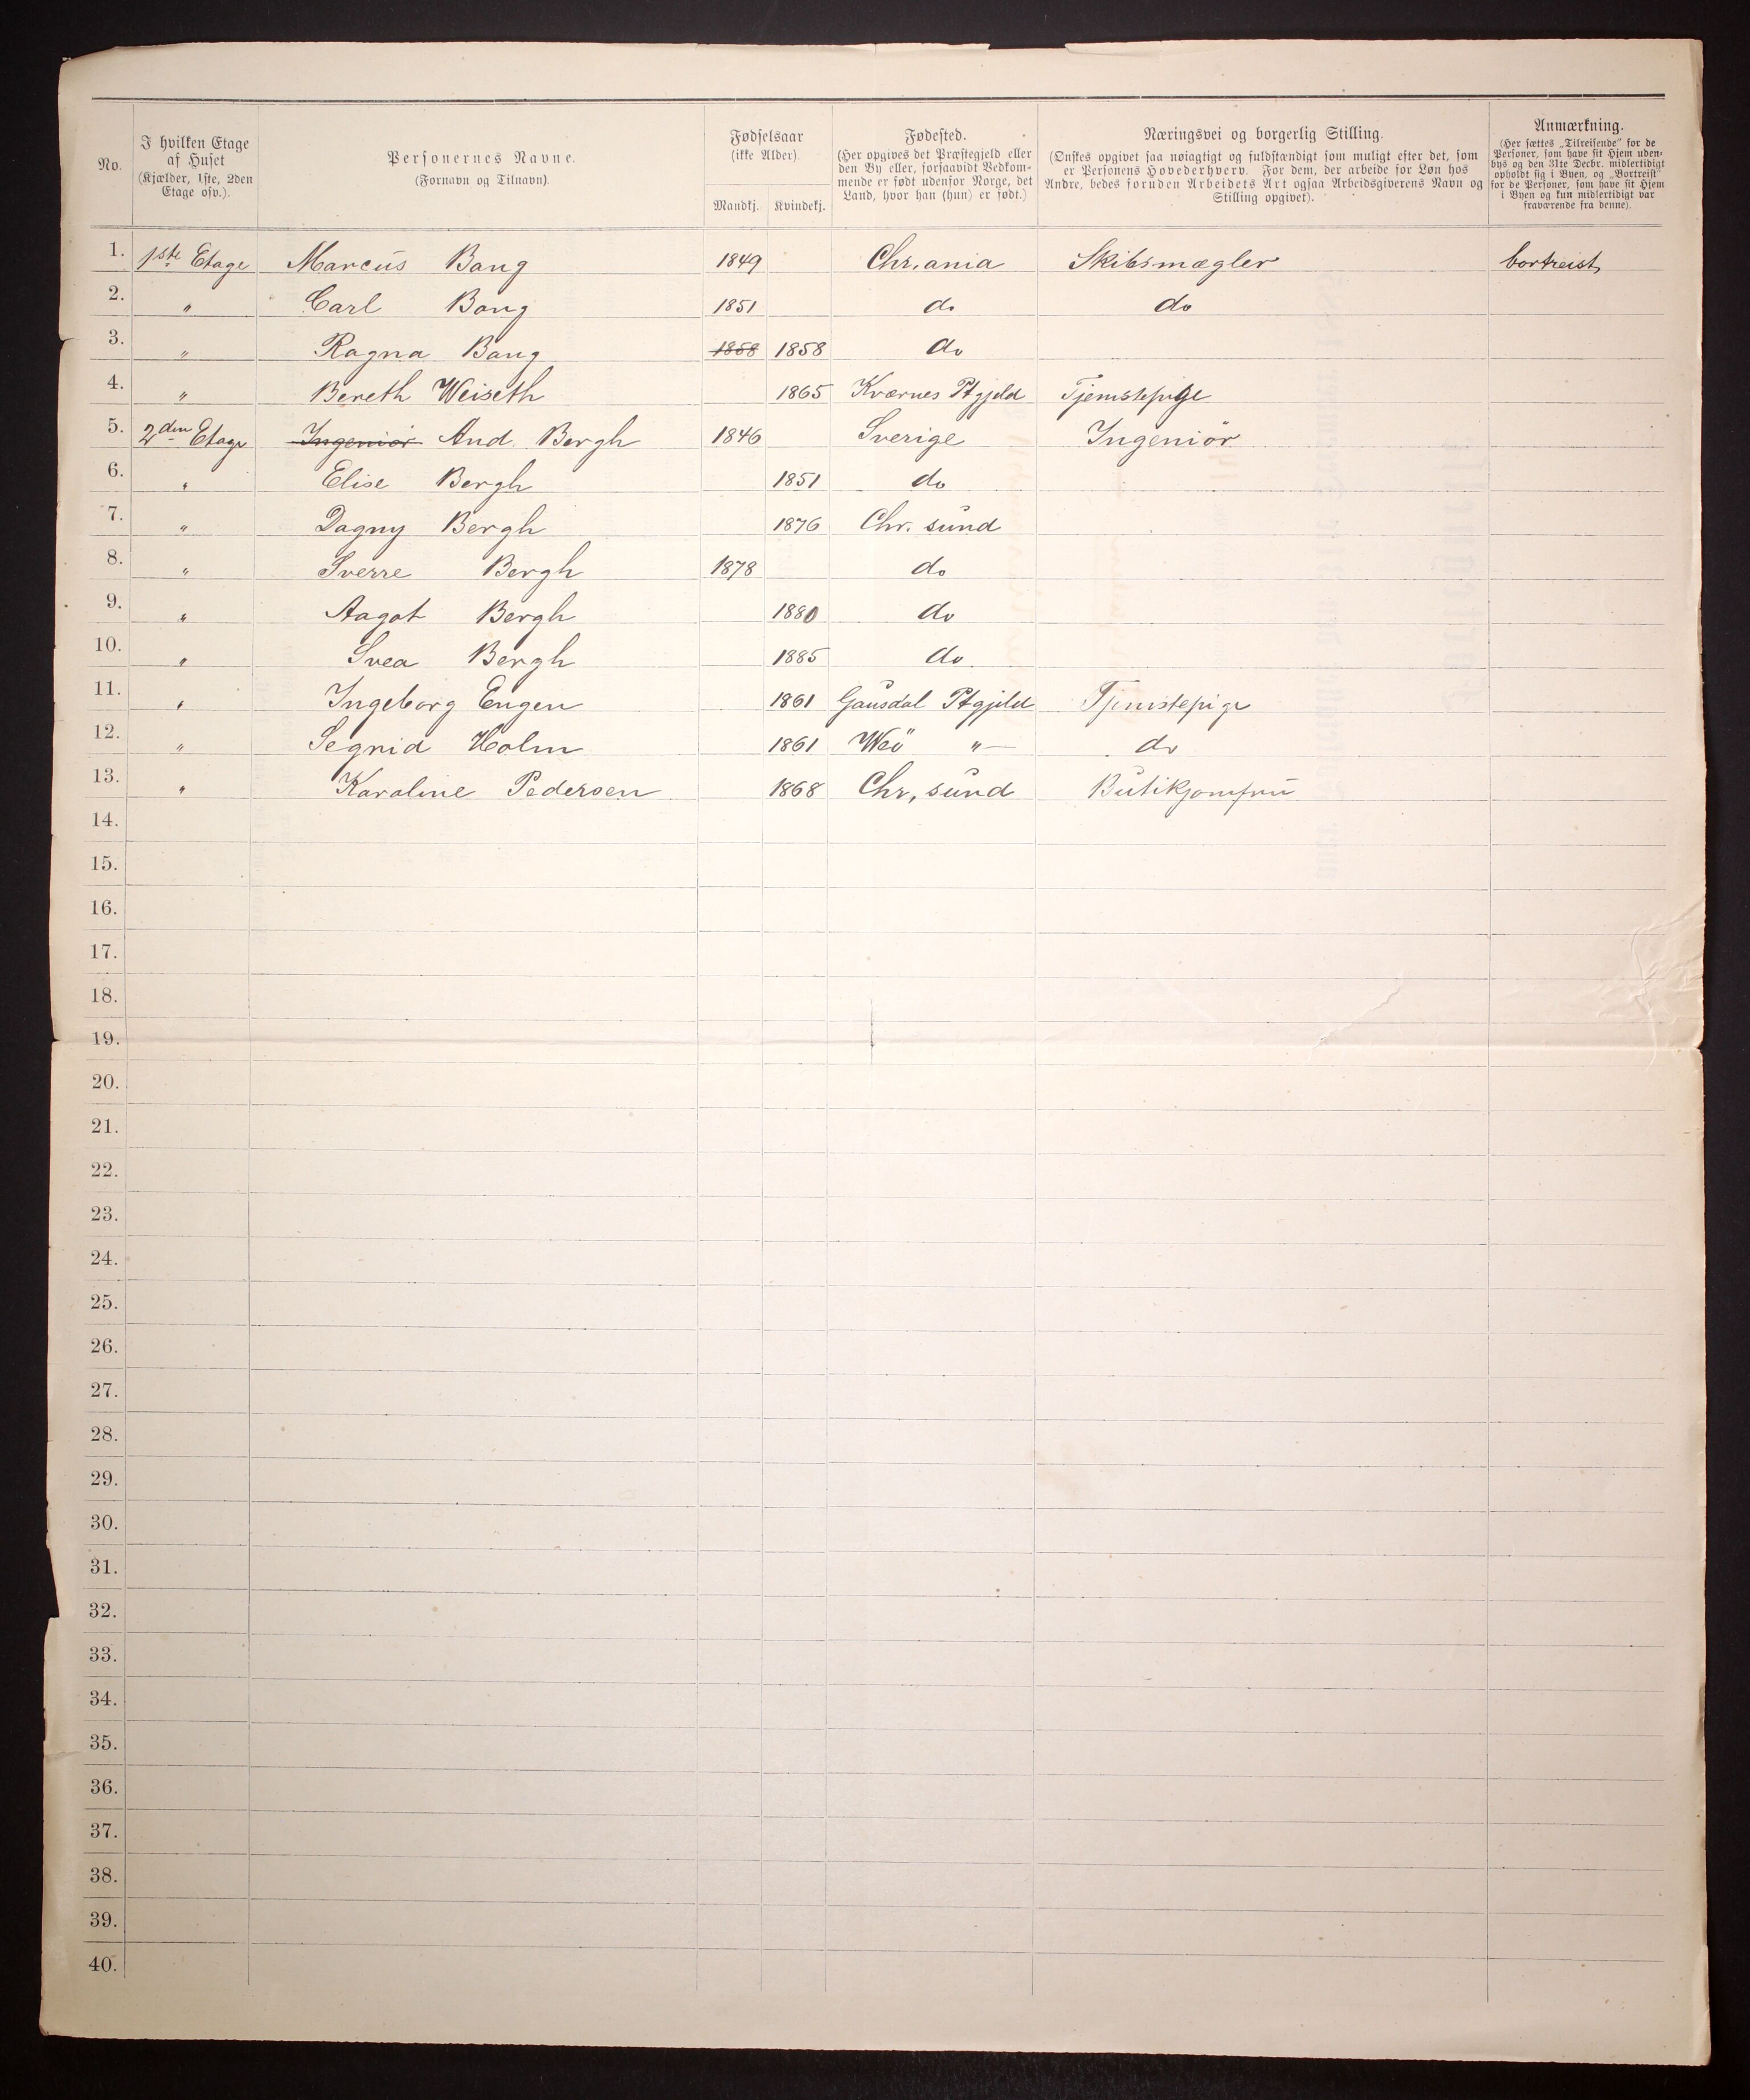 No. | I hvilken Etage af Huset (Kjælder, 1ste, 2den Etage osv.). | Personernes Navne. (Fornavn og Tilnavn). | Fødselsaar (ikke Alder). Mandkj. | Kvindekj. | Fødested. (Her opgives det Præstegjeld eller den By eller, forsaavidt Vedkommende er født udenfor Norge, det Land, hvor han (hun) er født.) | Næringsvei og borgerlig Stilling. (Ønskes opgivet saa nøiagtigt og fuldstændigt som muligt efter det, som er Personens Hovederhverv. For dem, der arbeide for Løn hos Andre, bedes foruden Arbeidets Art ogsaa Arbeidsgiverens Navn og Stilling opgivet). | Anmærkning. (Her sættes „Tilreisende" for de Personer, som have sit Hjem udenbys og den 31te Decbr. midlertidigt opholdt sig i Byen, og „Bortreist" for de Personer, som have sit Hjem i Byen og kun midlertidigt var fraværende fra denne).
1. 1ste Etage Marcus Bang 1849 Chr.ania Skibsmægler bortreist
2. " Carl Bang 1851 do do
3. " Ragna Bang 1858 1858 do
4. " Bereth Weiseth 1865 Kværnes Ptgjeld Tjenstepige
5. 2den Etage Ingeniör And. Bergh 1846 Sverige Ingeniör
6. " Elise Bergh 1851 do
7. " Dagny Bergh 1876 Chr. sund
8. " Sverre Bergh 1878 do
9. " Aagot Bergh 1880 do
10. " Svea Bergh 1885 do
11. " Ingeborg Engen 1861 Gausdal Ptgjeld Tjenstepige
12. " Segrid Holm 1861 Weö "— do
13. " Karoline Pedersen 1868 Chr. sund Butikjomfru
14.
15.
16.
17.
18.
19.
20.
21.
22.
23.
24.
25.
26.
27.
28.
29.
30.
31.
32.
33.
34.
35.
36.
37.
38.
39.
40.